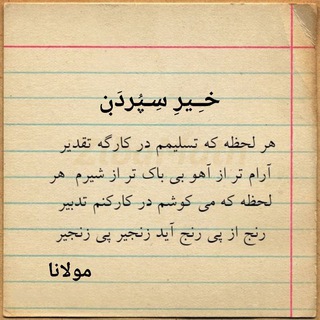 خـیرِ سـپُردَنِ
هر لحظه که تسلیمم در کارگه تقدیر
آرام تر از آهو بی باک تر از شیرم هر
لحظه که می کوشم در کارکنم تدبیر
رنج از پی رنج آید زنجیر پی زنجیر
مولانا